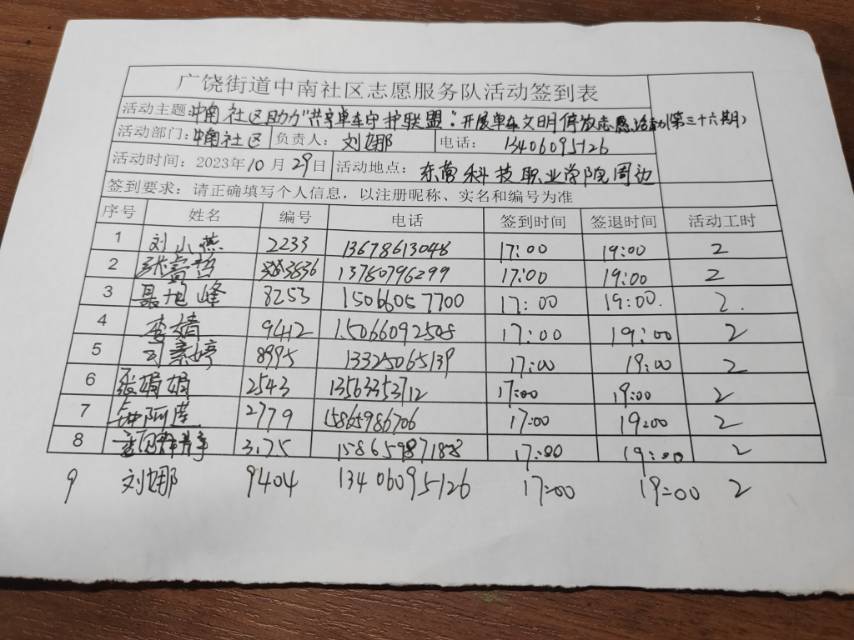 广饶街道中南社区志愿服务队活动签到表
活动主题:中南社区助力"共享单车守护联盟":开展单车文明停放志愿活动(第三十六期)
活动部门:中南社区 负责人: 刘娜 电话: 13406095126
活动时间: 2023年10月29日 活动地点: 东营科技职业学院周边
签到要求: 请正确填写个人信息,以注册昵称、实名和编号为准
序号 姓名 编号 电话 签到时间 签退时间 活动工时
1 刘小燕 2233 13678613048 17:00 19:00 2
2 13780796299 17:00 19:00 2
3 聂旭峰 8253 15066057700 17:00 19:00. 2.
4 李婧 9412 15066092508 17:00 19:00 2
5 8995 13325065139 17:00 19:00 2
6 张娟娟 2543 13563353712 17:00 19:00 2
7 钟阿莲 2779 15865986706 17:00 19:00 2
8 3.75 17:00 19:00 2
9 刘娜 9404 13406095126 17:00 19:00 2